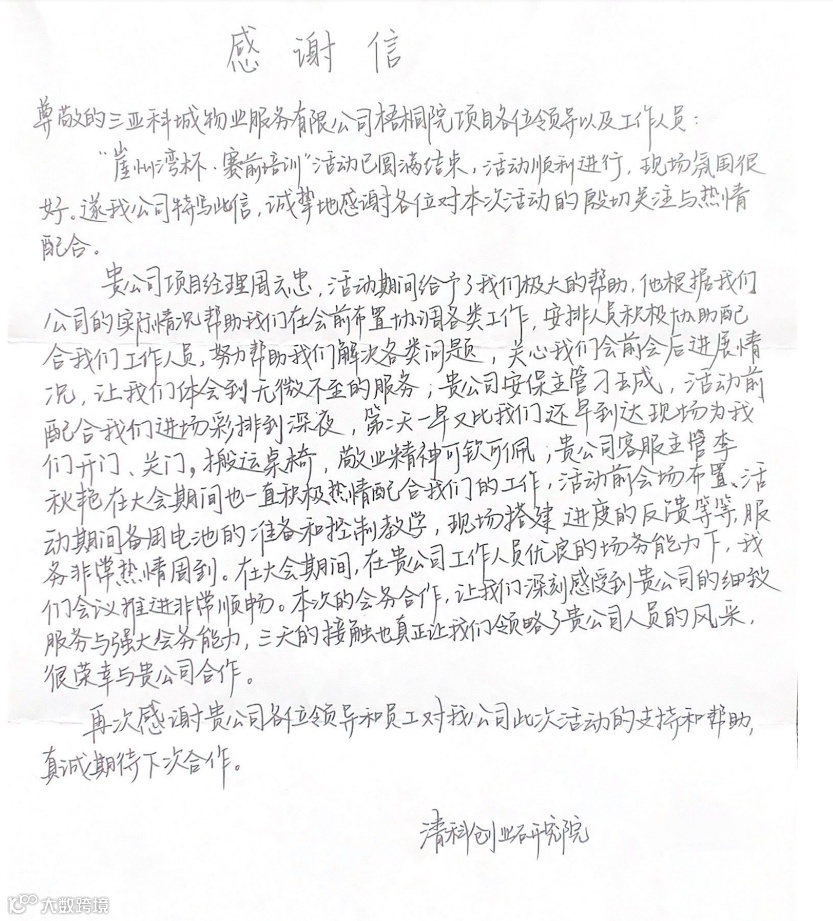 感谢信
尊敬的三亚科城物业服务有限公司梧桐院项目各位领导以及工作人员：
“崖州湾杯·赛前培训”活动已圆满结束，活动顺利进行，现场氛围很
好。遂我公司特写此信，诚挚地感谢各位对本次活动的殷切关注与热情
配合。
贵公司项目经理周云忠，活动期间给予了我们极大的帮助，他根据我们
公司的实际情况帮助我们在会前布置协调各类工作，安排人员积极协助配
合我们工作人员，努力帮助我们解决各类问题，关心我们会前会后进展情
况，让我们体会到无微不至的服务；贵公司安保主管刁成，活动前
配合我们进场彩排到深夜，第二天一早又比我们还早到达现场为我
们开门、关门，搬运桌椅，敬业精神可钦可佩；贵公司客服主管李
秋艳在大会期间也一直积极热情配合我们的工作，活动前会场布置、活
动期间备用电池的准备和控制教学，现场搭建进度的反馈等等，服
务非常热情周到。在大会期间，在贵公司工作人员优良的场务能力下，我
们会议推进非常顺畅。本次的会务合作，让我们深刻感受到贵公司的细致
服务与强大会务能力，三天的接触也真正让我们领略了贵公司人员的风采，
很荣幸与贵公司合作。
再次感谢贵公司各位领导和员工对我公司此次活动的支持和帮助，
真诚期待下次合作。
清科创业研究院
大数跨境